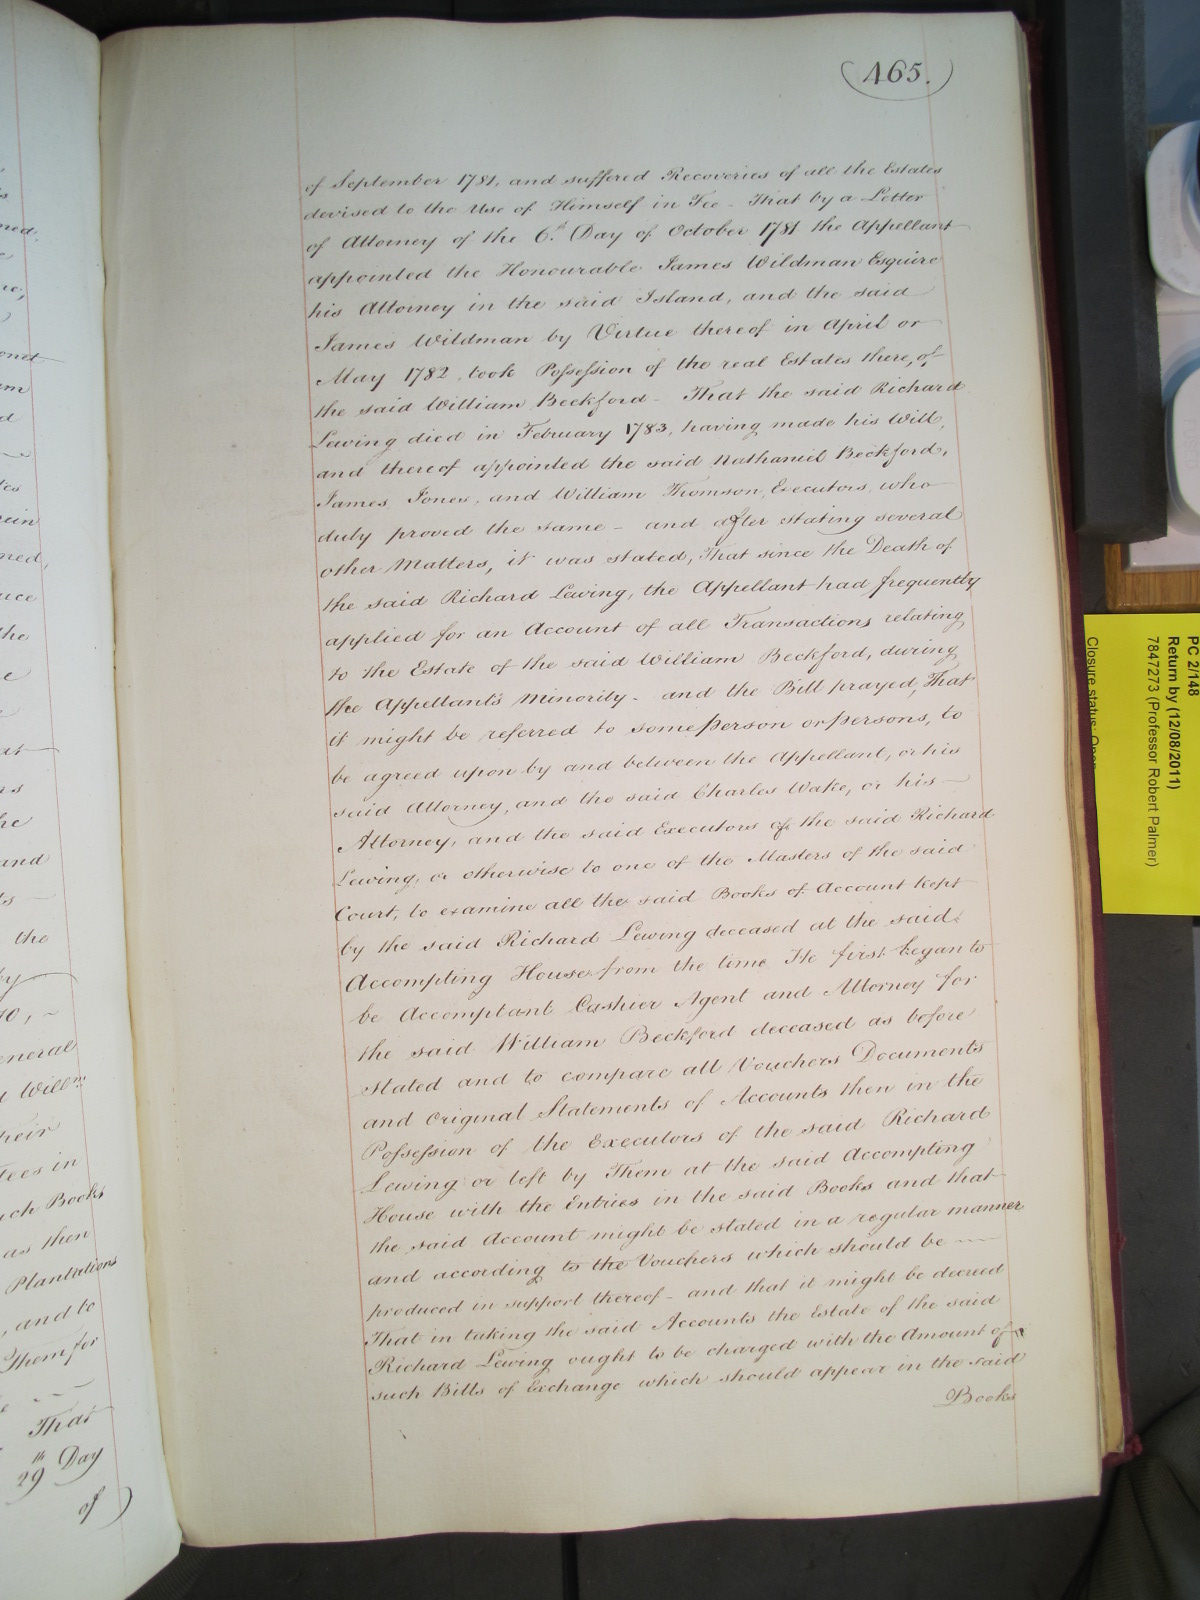 ned.
onet
um
d
ces
rein
med,
uce
the
e
at
rs
he
and
ts
the
by
40, ~
eneral
d Willm
their
Fees in
such Books
as then
Plantations
, and to
Them for
That
29th Day
of )
(465.)
of September 1781, and suffered Recoveries of all the Estates
devised to the Use of Himself in Fee - That by a Letter
of Attorney of the 6th Day of October 1781 the Appellant
appointed the Honourable James Wildman Esquire
his Attorney in the said Island, and the said
James Wildman by Virtue thereof in April or
May 1782, took Possession of the real Estates there, of
the said William Beckford - That the said Richard
Lewing died in February 1783, having made his Will,
and thereof appointed the said Nathaniel Beckford,
James Jones, and William Thomson, Executors, who
duly proved the same - and after stating several
other Matters, it was stated, That since the Death of
the said Richard Lewing, the Appellant had frequently
applied for an Account of all Transactions relating
to the Estate of the said William Beckford, during
the Appellant's Minority - and the Bill prayed, That
it might be referred to some person or persons, to
be agreed upon by and between the Appellant, or his
said Attorney, and the said Charles Wake, or his
Attorney, and the said Executors of the said Richard
Lewing, or otherwise to one of the Masters of the said
Court, to examine all the said Books of Account kept
by the said Richard Lewing deceased at the said
Accompting House from the time He first began to
be Accomptant Cashier Agent and Attorney for
the said William Beckford deceased as before
stated and to compare all Vouchers Documents
and Original Statements of Accounts then in the
Possession of the Executors of the said Richard
Lewing or left by Them at the said Accompting
House with the Entries in the said Books and that
the said Account might be stated in a regular manner
and according to the Vouchers which should be
produced in support thereof - and that it might be decreed
That in taking the said Accounts the Estate of the said
Richard Lewing ought to be charged with the Amount of
such Bills of Exchange which should appear in the said
Books
PC 2/148
Return by (12/08/2011)
7847273 (Professor Robert Palmer)
Closure status: Open